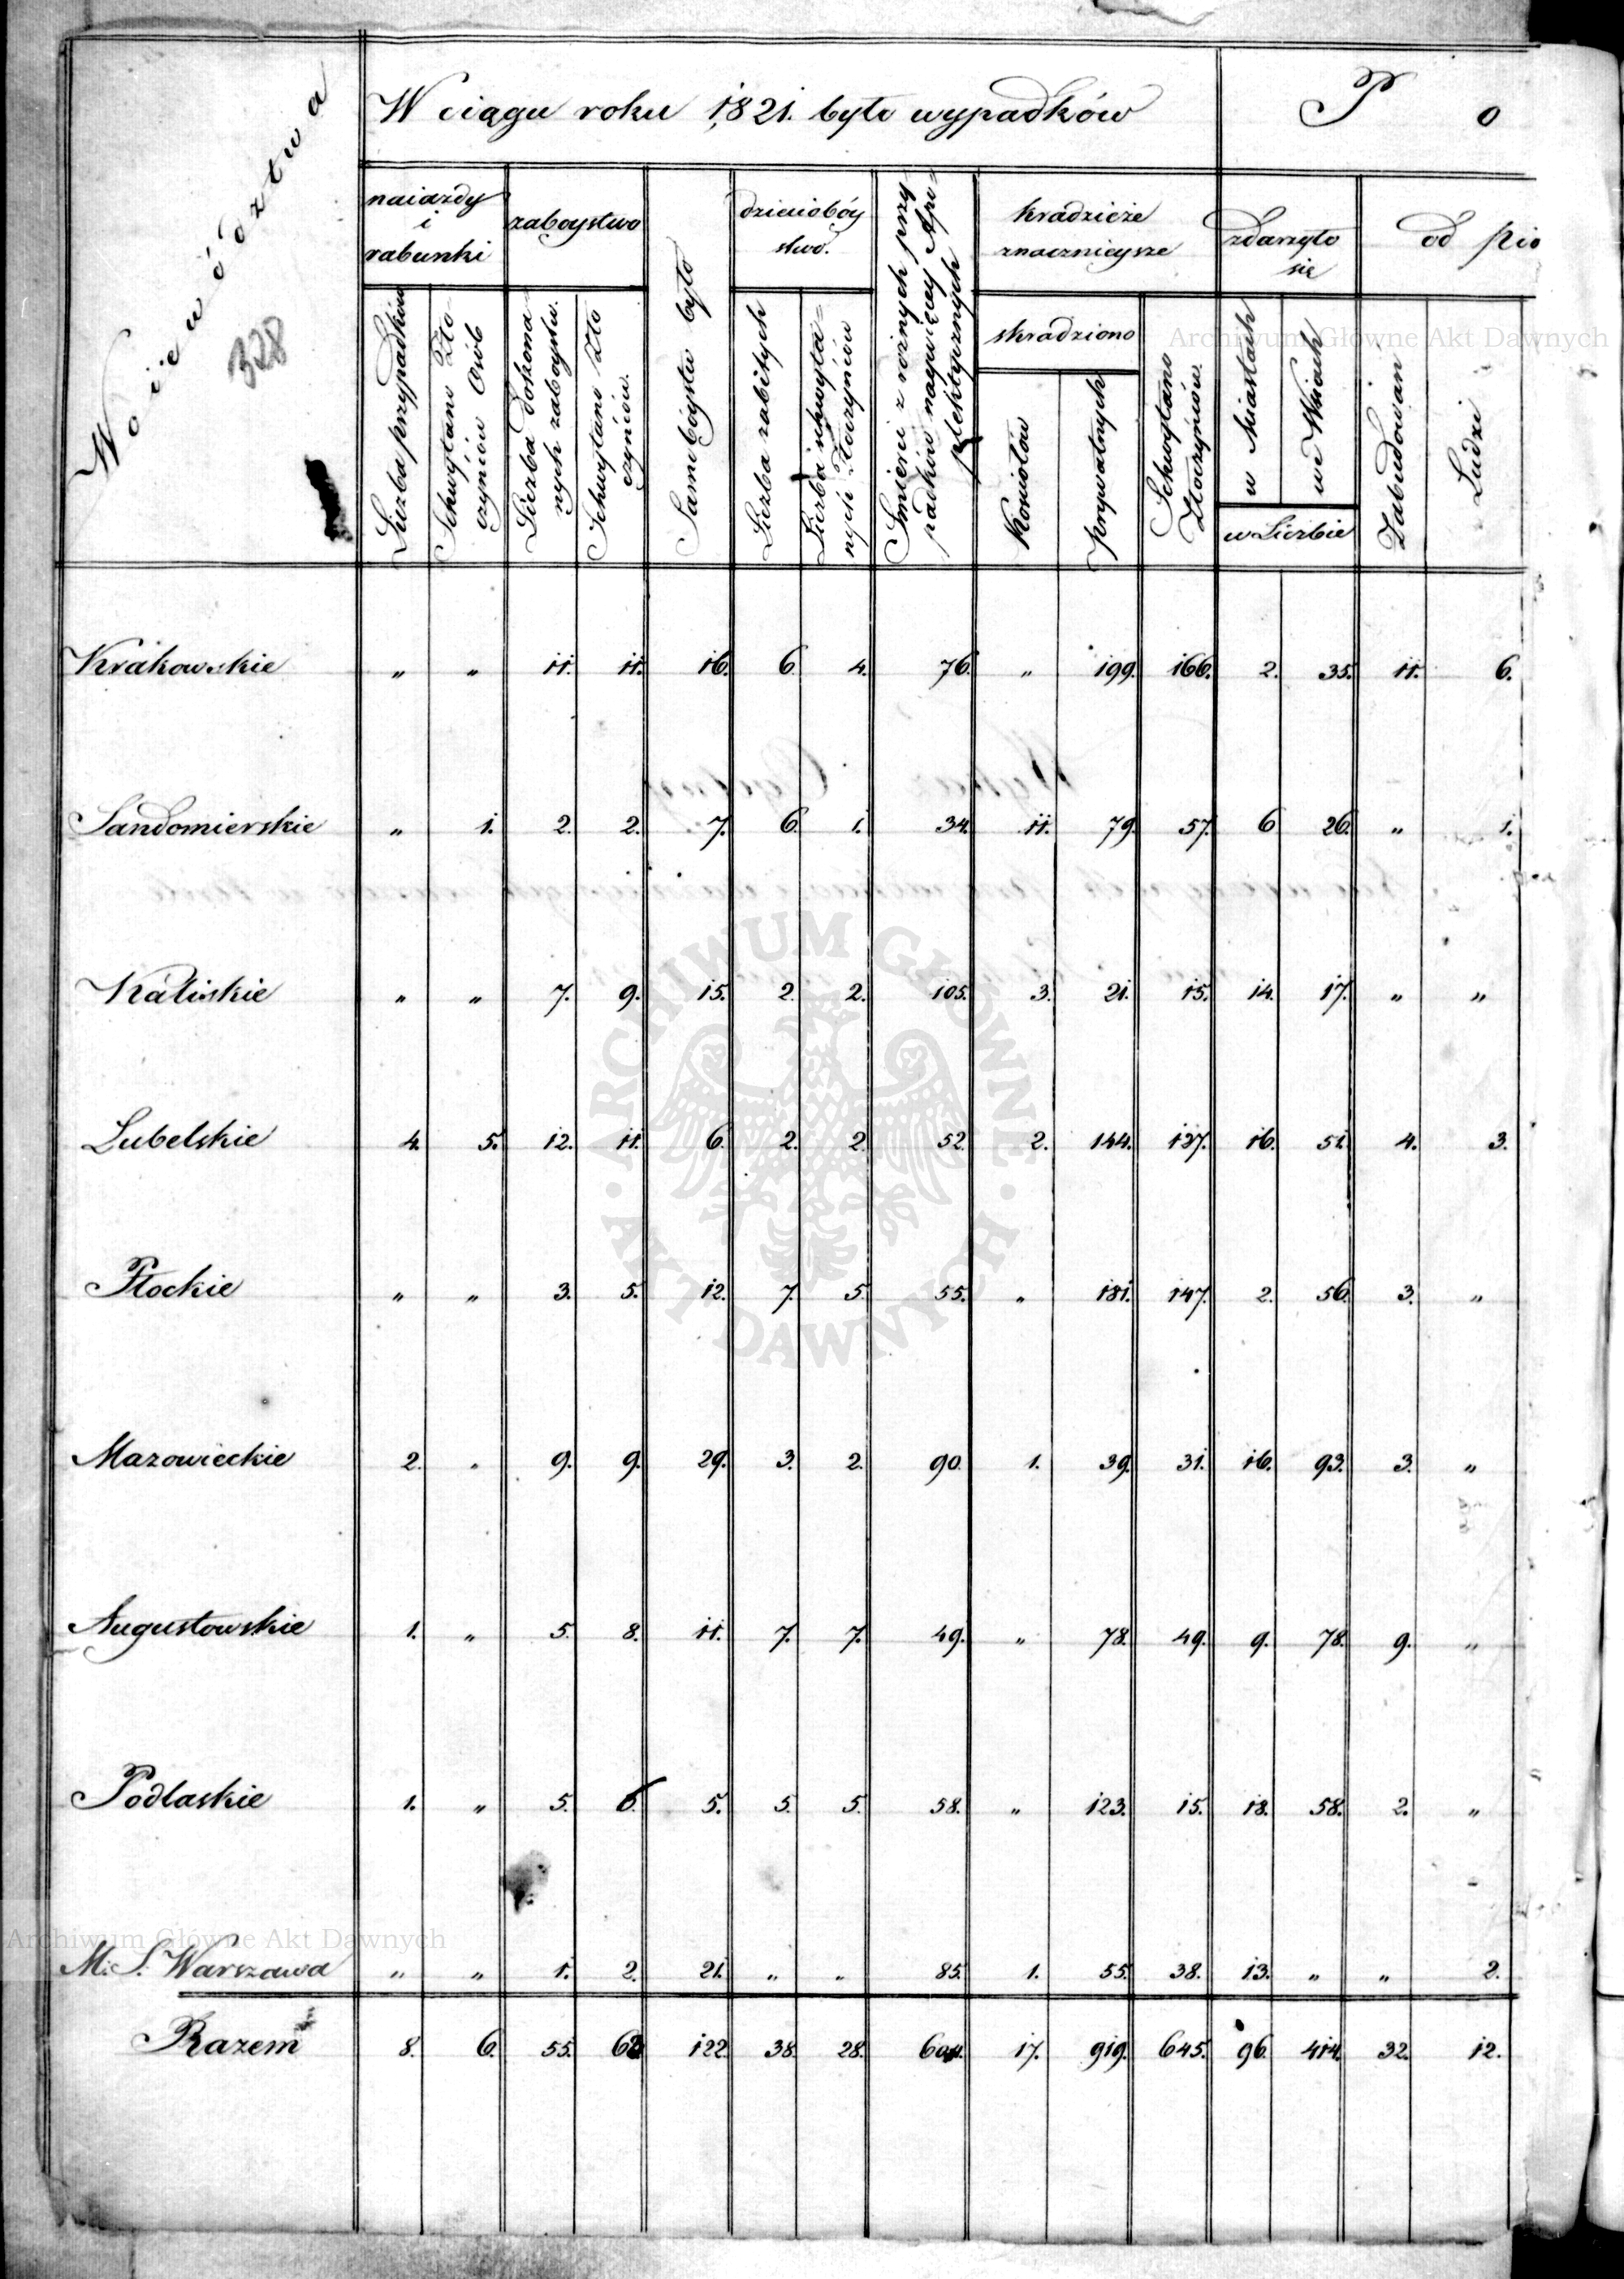 Woiewództwa
328
W ciągu roku 1821. było wypadków
P o
naiazdy
i
rabunki
zaboystwo
Samobóystw było
dzieciobóy
stwo.
Smierci z roznych przy-
padków naywięcey Apo-
plektycznych
kradzieże
znacznieysze
zdarzyło
się
od pio
Liczba przypadków
Schwytano Zło-
czyńców Osób
Liczba dokona-
nych zaboystw.
Schwytano Zło
czyńców.
Liczba zabitych
Liczba schwyta-
nych Złoczyńców
skradziono
Kosciołów
prywatnych
Schwytano
Złoczyńców.
w Miastach
we Wsiach
w Liczbie
Zabudowań
Ludzi
Krakowskie " " 11. 11. 16. 6. 4. 76. " 199. 166. 2. 35. 11. 6.
Sandomierskie " 1. 2. 2. 7. 6. 1. 34. 11. 79. 57. 6 26. " 1.
Kaliskie " " 7. 9. 15. 2. 2. 105. 3. 21. 15. 14. 17. " "
Lubelskie 4. 5. 12. 11. 6. 2. 2. 52. 2. 144. 127. 16. 51. 4. 3.
Płockie " " 3. 5. 12. 7. 5. 55. " 181. 147. 2. 56. 3. "
Mazowieckie 2. " 9. 9. 29. 3. 2. 90. 1. 39. 31. 16. 93. 3. "
Augustowskie 1. " 5. 8. 11. 7. 7. 49. " 78. 49. 9. 78. 9. "
Podlaskie 1. " 5. 6. 5. 5. 5. 58. " 123. 15. 18. 58. 2. "
M: S. Warszawa " " 1. 2. 21. " " 85. 1. 55. 38. 13. " " 2.
Razem 8. 6. 55. 122. 38. 28. 604. 17. 919. 645. 96. 414. 32. 12.
Archiwum Główne Akt Dawnych
ARCHIWUM GŁÓWNE · AKT DAWNYCH ·
Archiwum Główne Akt Dawnych